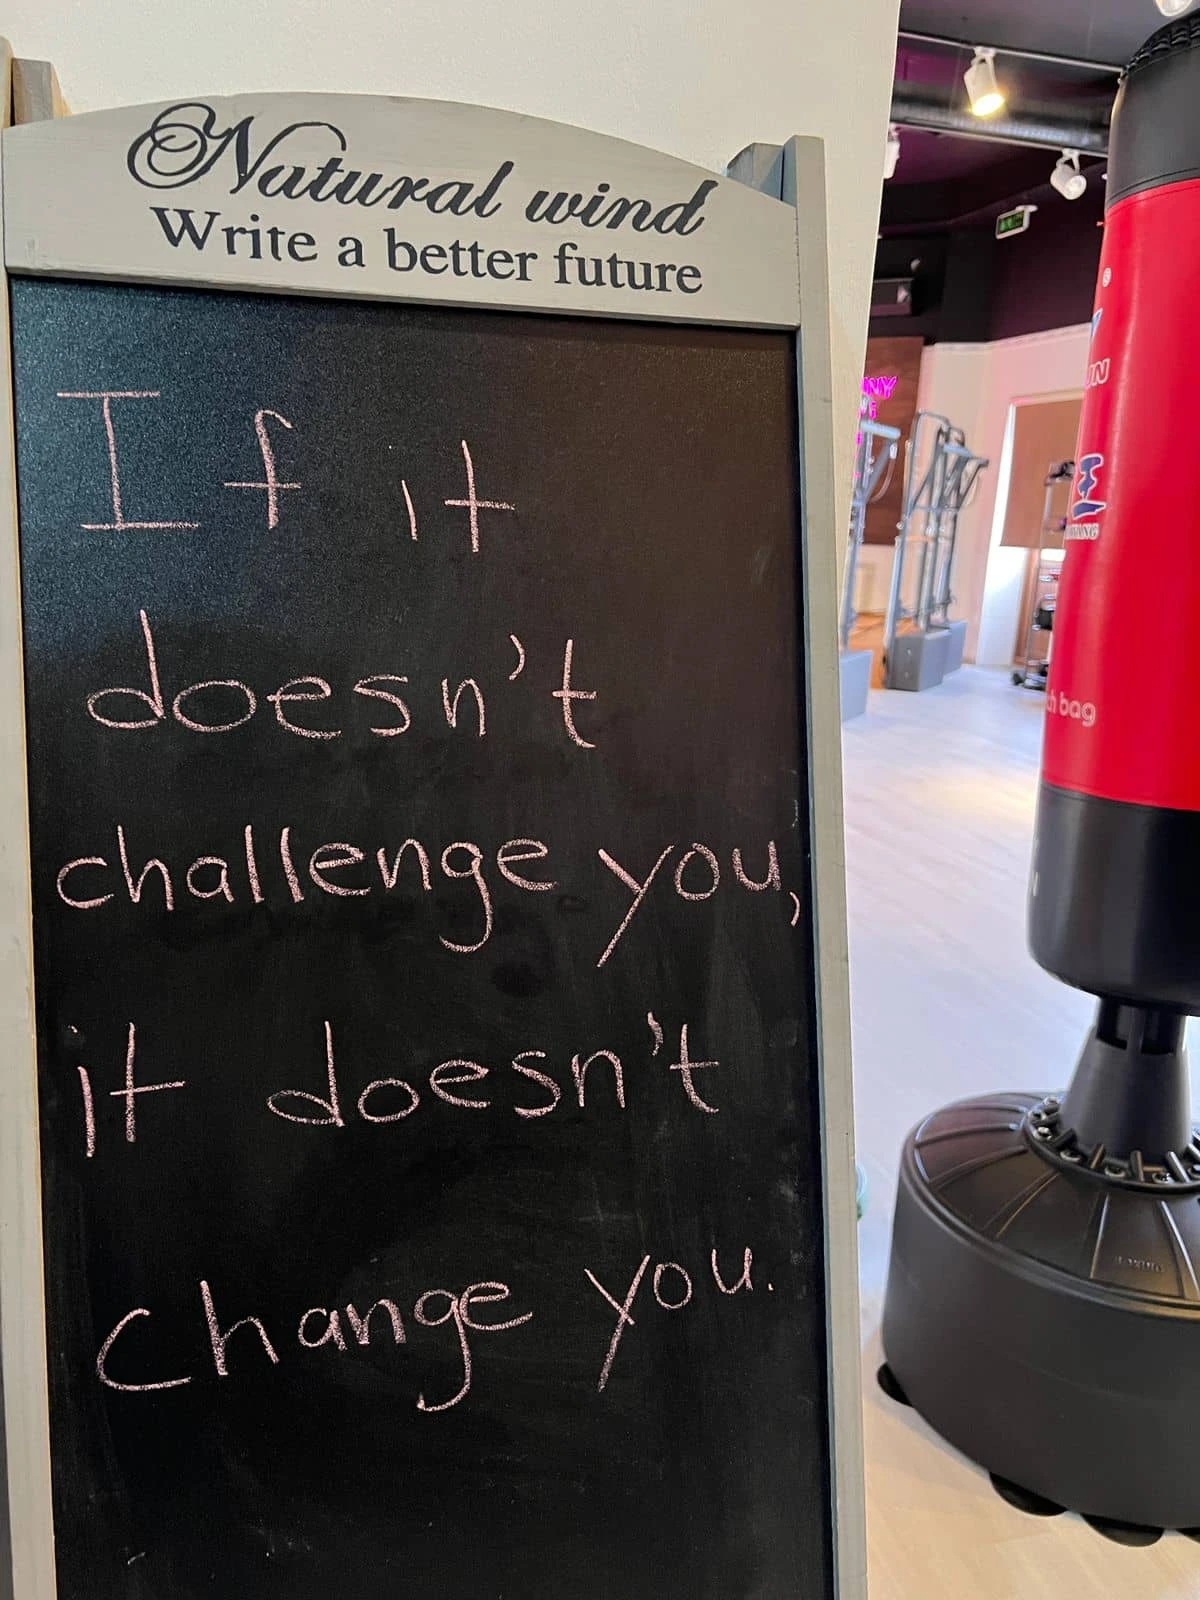 Natural wind
Write a better future
If it
doesn't
challenge you,
it doesn't
change you.
ch bag